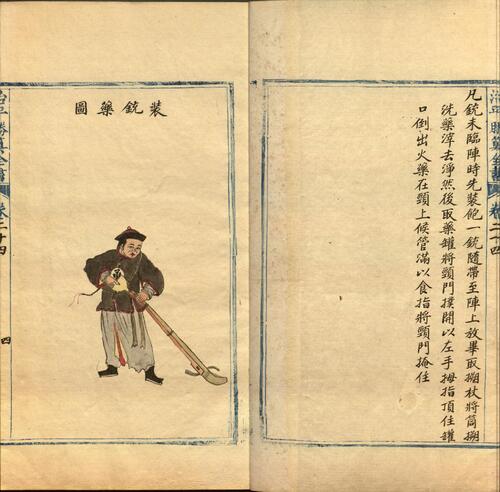 凡銃未臨陣時先裝飽一銃隨帶至陣上放畢取搠杖將筒搠
洗藥滓去淨然後取藥罐將頸門撲開以左手拇指頂住罐
口倒出火藥在頸上候管滿以食指將頸門掩住
治平勝算全書
卷二十四
裝銃藥圖
治平勝算全書
卷二十四
四